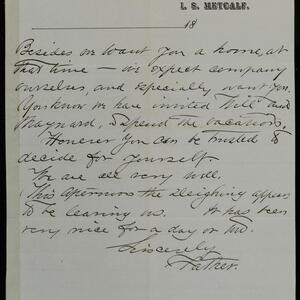 L. S. METCALF.
18
Besides we want you a home, at
that time – we expect company
ourselves, and especially want you.
You know we have invited "Nell" and
Maynard, to spend the vacations.
However you can be trusted to
decide for yourself.
We are all very well.
This afternoon the sleighing appears
to be leaving us. It has been
very nice for a day or two.
Sincerely
Father.